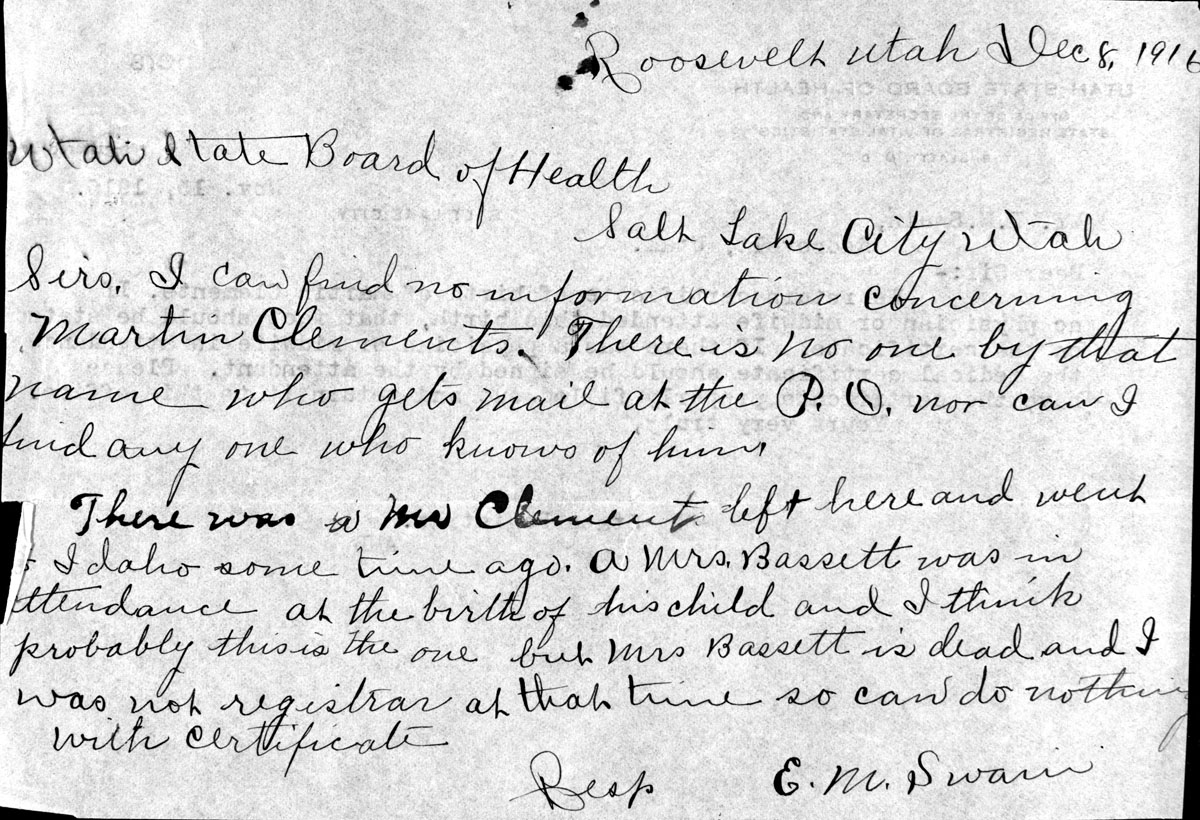 Roosevelt Utah Dec 8, 1916
Utah State Board of Health
Salt Lake City Utah
Sirs, I can find no information concerning
Martin Clements. There is no one by that
name who gets mail at the P.O. nor can I
find any one who knows of him.
There was a Mr Clement left here and went
Idaho some time ago. A Mrs. Bassett was in
ttendance at the birth of his child and I think
probably this is the one but Mrs Bassett is dead and I
was not registrar at that time so can do nothing
with certificate
Resp E. M. Swain